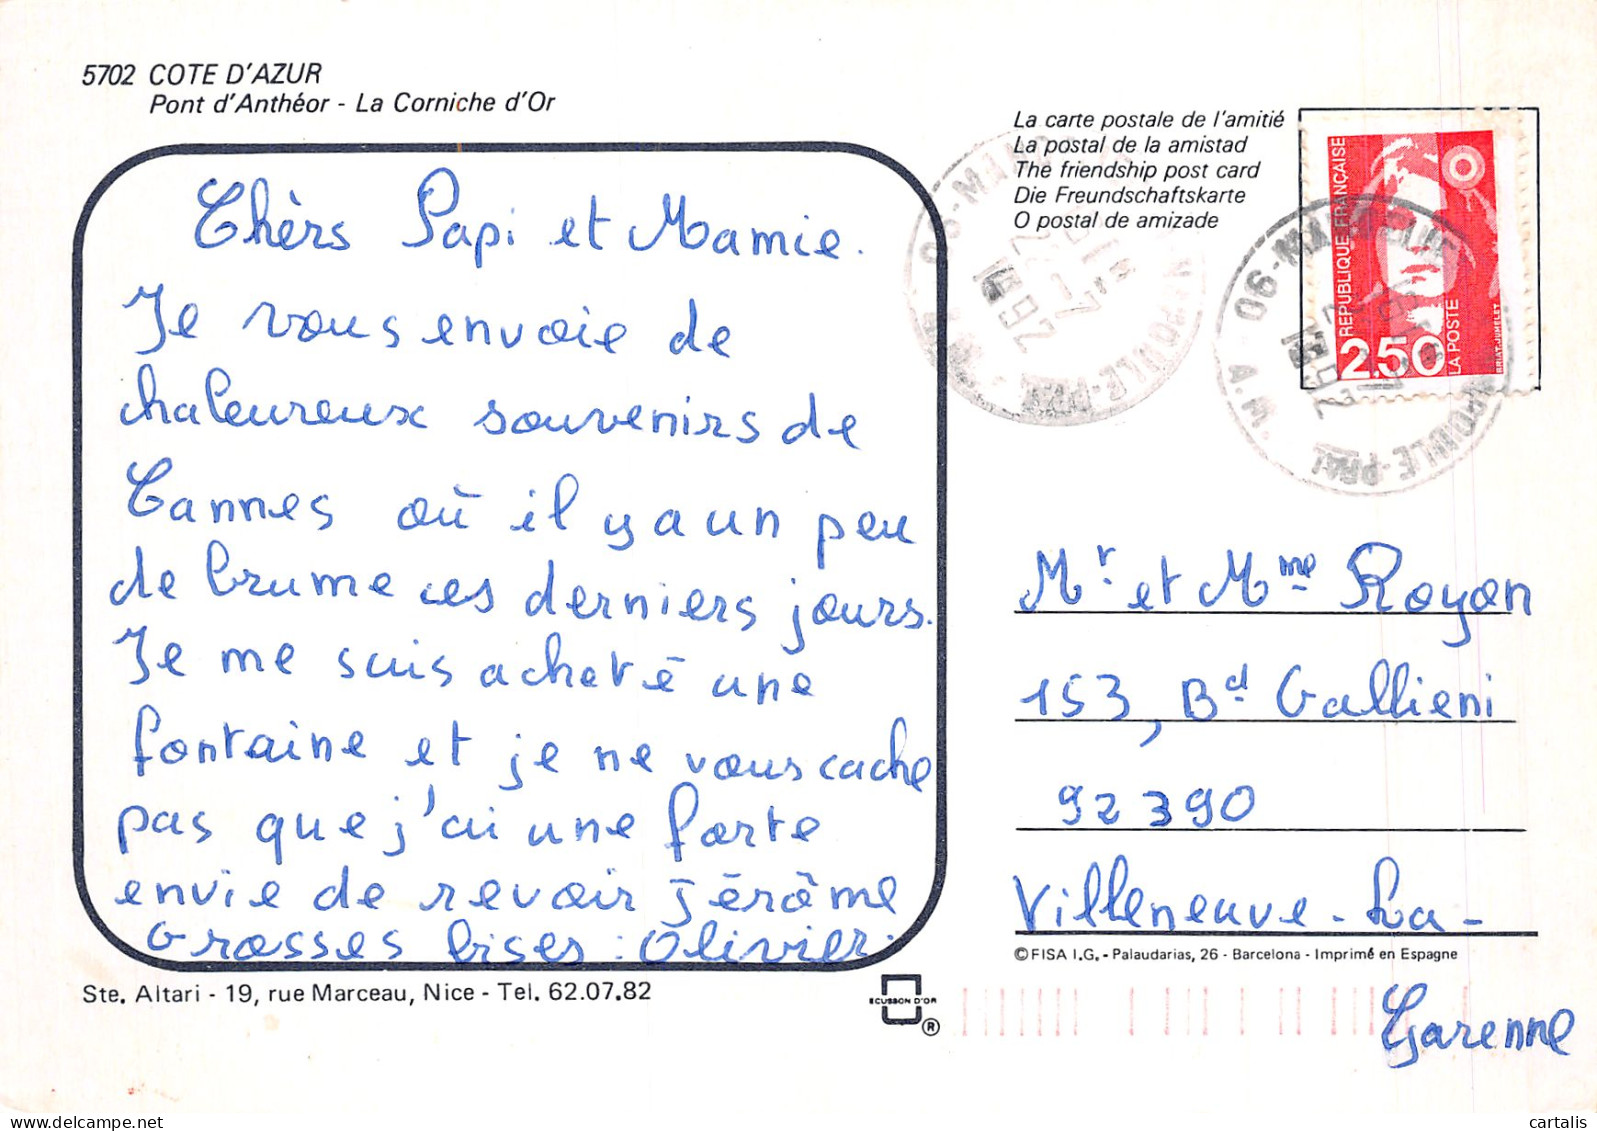 5702 COTE D'AZUR
Pont d'Anthéor - La Corniche d'Or
Chèrs Papi et Mamie.
Je vous envoie de
chaleureux souvenirs de
Cannes où il y a un peu
de brume ces derniers jours.
Je me suis acheté une
fontaine et je ne vous cache
pas que j'ai une forte
envie de revoir Jérôme
Grosses bises : Olivier.
Ste. Altari - 19, rue Marceau, Nice - Tel. 62.07.82
La carte postale de l'amitié
La postal de la amistad
The friendship post card
Die Freundschaftskarte
O postal de amizade
REPUBLIQUE FRANÇAISE
2,50
LA POSTE
BRIAT-JUMELET
Mr et Mme Royon
153, Bd Gallieni
92390
Villeneuve-La-
Garenne
© FISA I.G. - Palaudarias, 26 - Barcelona - Imprimé en Espagne
ECUSSON D'OR
®
cartalis